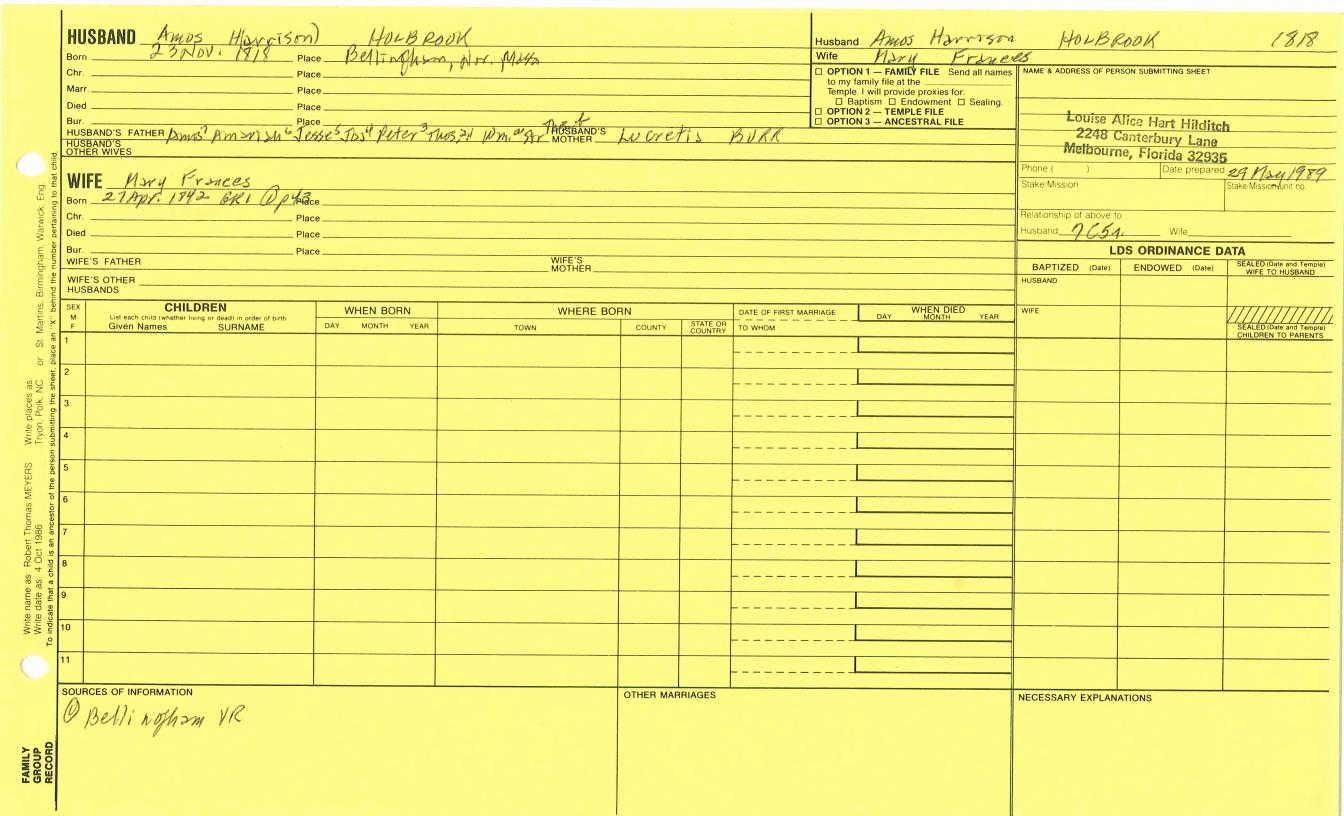 HUSBAND Amos Harrison HOLBROOK
Born 23 Nov. 1818 Place Bellingham, Nor. Mass
Chr. Place
Marr. Place
Died Place
Bur. Place
HUSBAND'S FATHER Amos⁷ Amariah⁶ Jesse⁵ Jos⁴ Peter³ Thos,2d HUSBAND'S MOTHER Lucretia BURR
HUSBAND'S OTHER WIVES
WIFE Mary Frances
Born 27 Apr. 1842 GR1 ① p43 Place
Chr. Place
Died Place
Bur. Place
WIFE'S FATHER WIFE'S MOTHER
WIFE'S OTHER HUSBANDS
Husband Amos Harrison HOLBROOK 1818
Wife Mary Frances
☐ OPTION 1 — FAMILY FILE Send all names
to my family file at the
Temple. I will provide proxies for:
☐ Baptism ☐ Endowment ☐ Sealing.
☐ OPTION 2 — TEMPLE FILE
☐ OPTION 3 — ANCESTRAL FILE
NAME & ADDRESS OF PERSON SUBMITTING SHEET
Louise Alice Hart Hilditch
2248 Canterbury Lane
Melbourne, Florida 32935
Phone ( ) Date prepared 29 May 1989
Stake/Mission Stake/Mission/unit no.
Relationship of above to
Husband 7C5r. Wife
LDS ORDINANCE DATA
BAPTIZED (Date) ENDOWED (Date) SEALED (Date and Temple) WIFE TO HUSBAND
HUSBAND
WIFE
SEALED (Date and Temple) CHILDREN TO PARENTS
SEX M F
CHILDREN
List each child (whether living or dead) in order of birth
Given Names SURNAME
WHEN BORN
DAY MONTH YEAR
WHERE BORN
TOWN COUNTY STATE OR COUNTRY
DATE OF FIRST MARRIAGE
TO WHOM
WHEN DIED
DAY MONTH YEAR
1
2
3
4
5
6
7
8
9
10
11
SOURCES OF INFORMATION
① Bellingham VR
OTHER MARRIAGES
NECESSARY EXPLANATIONS
Write name as: Robert Thomas MEYERS Write places as: Tryon, Polk, NC or St. Martins, Birmingham, Warwick, Eng.
Write date as: 4 Oct 1986
To indicate that a child is an ancestor of the person submitting the sheet, place an "X" behind the number pertaining to that child.
FAMILY GROUP RECORD